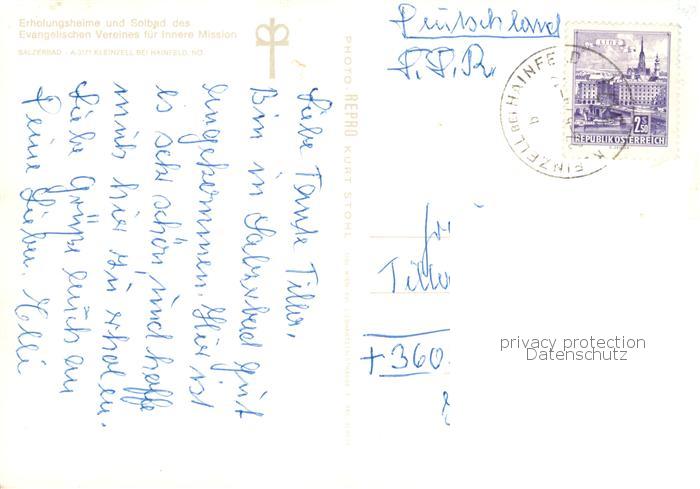 Erholungsheime und Solbad des
Evangelischen Vereines für Innere Mission
SALZERBAD - A-3171 KLEINZELL BEI HAINFELD, NÖ.
Liebe Tante Tilla,
Bin in Salzerbad gut
angekommen. Hier ist
es sehr schön, und hoffe
mich hier zu erholen.
Liebe Grüße auch an
Deine Lieben. Elli
PHOTO: REPRO KURT STOHL
Deutschland
LINZ
2.50
REPUBLIK ÖSTERREICH
KLEINZELL BEI HAINFELD
b
Tilla
+360
privacy protection
Datenschutz